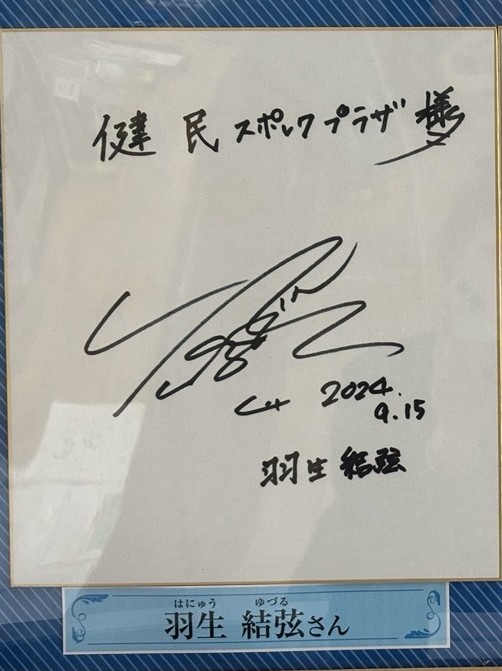 健民スポレクプラザ様
2024.
9.15
羽生 結弦
はにゅう ゆづる
羽生 結弦さん